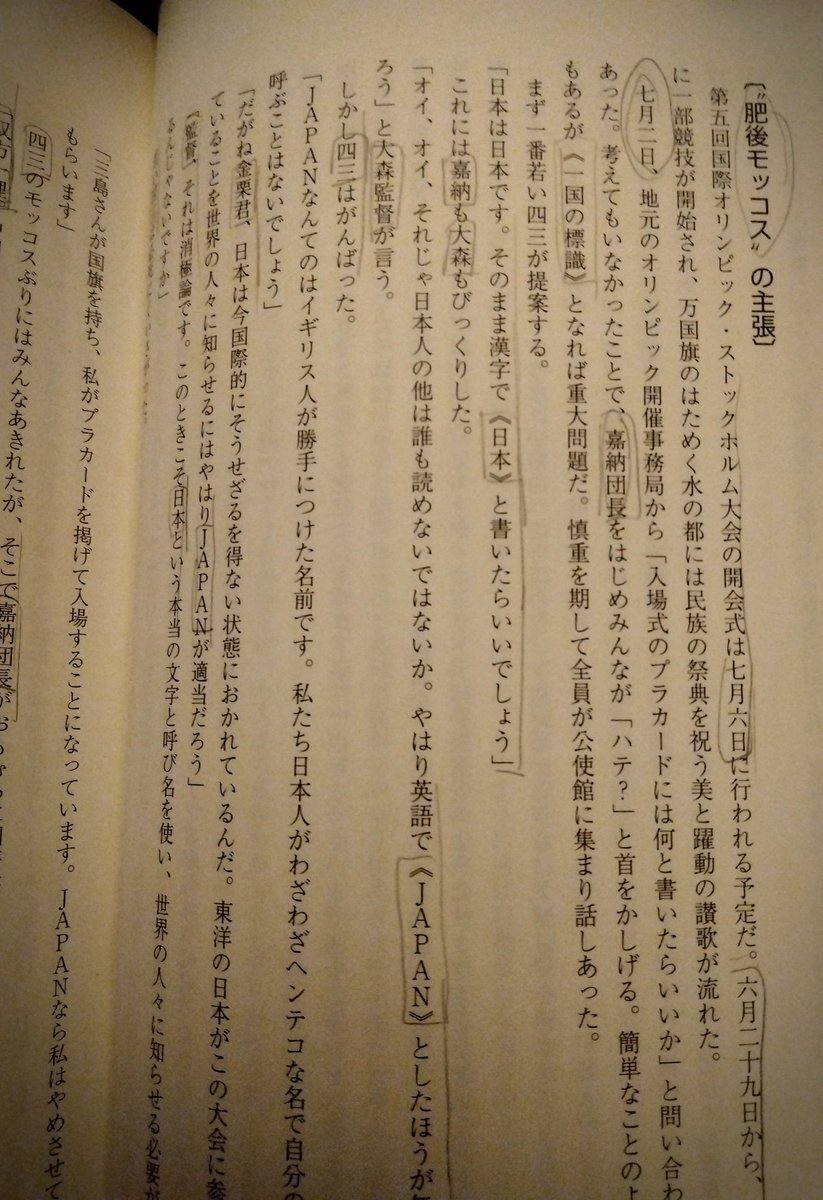 〔“肥後モッコス”の主張〕
第五回国際オリンピック・ストックホルム大会の開会式は七月六日に行われる予定だ。六月二十九日から、
に一部競技が開始され、万国旗のはためく水の都には民族の祭典を祝う美と躍動の讃歌が流れた。
七月二日、地元のオリンピック開催事務局から「入場式のプラカードには何と書いたらいいか」と問い合わ
あった。考えてもいなかったことで、嘉納団長をはじめみんなが「ハテ？」と首をかしげる。簡単なことのよ
もあるが《一国の標識》となれば重大問題だ。慎重を期して全員が公使館に集まり話しあった。
まず一番若い四三が提案する。
「日本は日本です。そのまま漢字で《日本》と書いたらいいでしょう」
これには嘉納も大森もびっくりした。
「オイ、オイ、それじゃ日本人の他は誰も読めないではないか。やはり英語で《JAPAN》としたほうが
ろう」と大森監督が言う。
しかし四三はがんばった。
「JAPANなんてのはイギリス人が勝手につけた名前です。私たち日本人がわざわざヘンテコな名で自分の
呼ぶことはないでしょう」
「だがね金栗君、日本は今国際的にそうせざるを得ない状態におかれているんだ。東洋の日本がこの大会に参
ていることを世界の人々に知らせるにはやはりJAPANが適当だろう」
「監督、それは消極論です。このときこそ日本という本当の文字と呼び名を使い、世界の人々に知らせる必要が
るんじゃないですか」
「三島さんが国旗を持ち、私がプラカードを掲げて入場することになっています。JAPANなら私はやめさせて
もらいます」
四三のモッコスぶりにはみんなあきれたが、そこで嘉納団長が